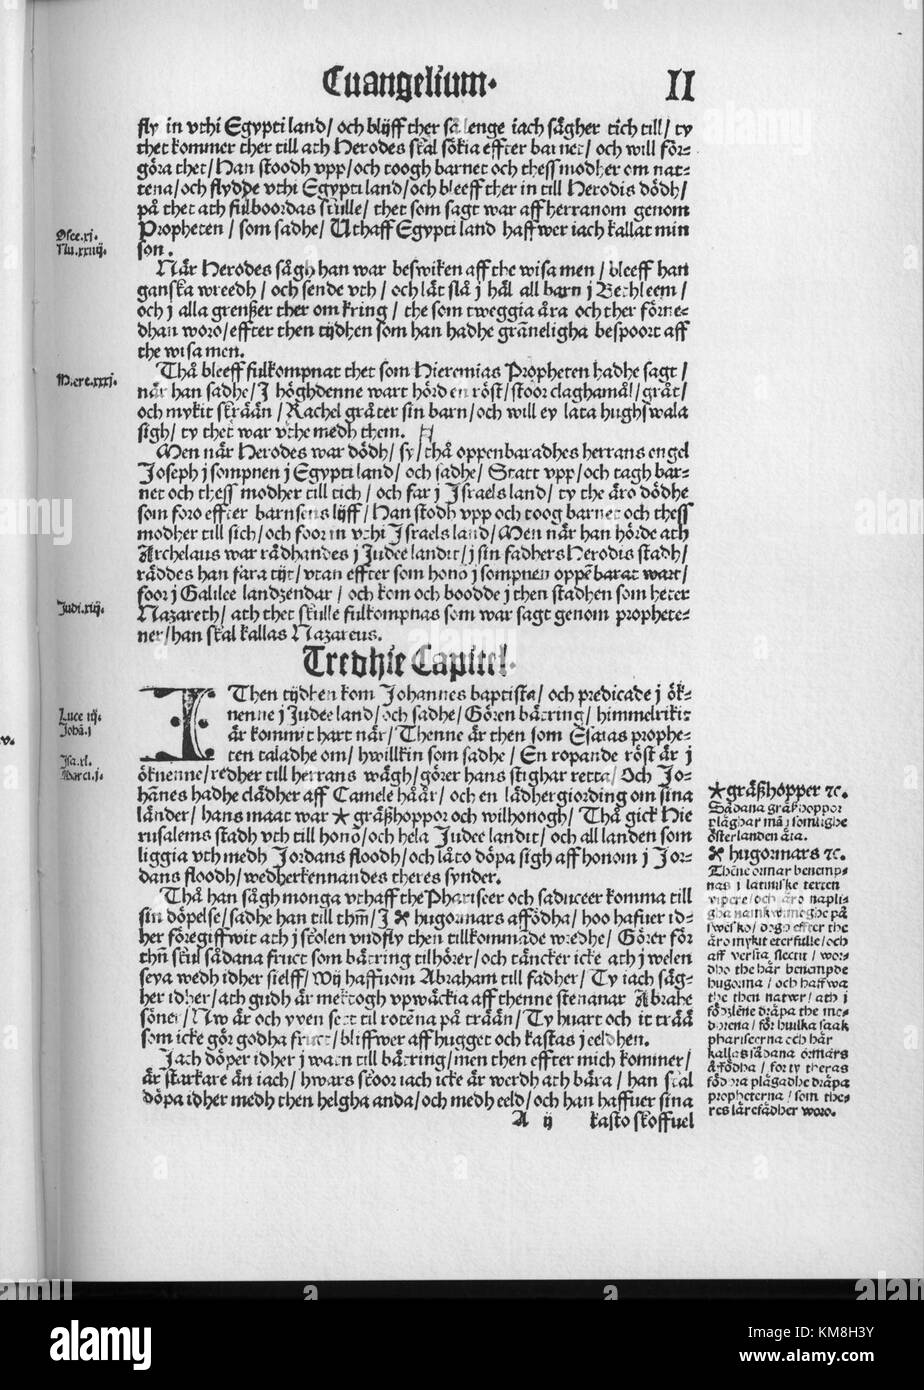 Euangelium. II
fly in vthi Egypti land/ och blijff ther så lenge iach sägher tich till/ ty
thet kommer ther till ath Herodes skal sökia effter barnet/ och will för-
göra thet/ Han stoodh vpp/ och toogh barnet och thess modher om nat-
tena/ och flydde vthi Egypti land/ och bleeff ther in till Herodis dödh/
på thet ath fulboordas skulle/ thet som sagt war aff herranom genom
Propheten/ som sadhe/ Uthaff Egypti land haffwer iach kallat min
son.
Osee.xj.
Nu.xxiiij.
När Herodes sågh han war beswiken aff the wisa men/ bleeff han
ganska wreedh/ och sende vth/ och lät slå j häl all barn j Bethleem/
och j alla grentzer ther om kring/ the som tweggia åra och ther förne-
dhan woro/ effter then tijdhen som han hadhe gråneligha bespoort aff
the wisa men.
Thå bleeff fulkompnat thet som Hieremias Propheten hadhe sagt/
Hiere.xxxj.
när han sadhe/ J höghdenne wart hörd en röst/ stoor claghamål/ gråt/
och mykit skrään/ Rachel gräter sin barn/ och will ey lata hughswala
sigh/ ty thet war vthe medh them.
Men när Herodes war dödh/ sy/ thå oppenbaradhes herrans engel
Joseph j sompnen j Egypti land/ och sadhe/ Statt vpp/ och tagh bar-
net och thess modher till tich/ och far j Israels land/ ty the äro dödhe
som foro effter barnsens lijff/ Han stodh vpp och toog barnet och thess
modher till sich/ och foor in vthi Israels land/ Men när han hörde ath
Archelaus war rådhandes j Judee landit/ j sin fadhers Herodis stadh/
räddes han fara tijt/ vtan effter som honō j sompnen oppēbarat wart/
foor j Galilee landzendar/ och kom och boodde j then stadhen som heter
Judi.xiij.
Nazareth/ ath thet skulle fulkompnas som war sagt genom prophete-
ner/ han skal kallas Nazareus.
Tredhie Capitel.
I Then tijdhen kom Johannes baptista/ och predicade j ök-
nenne j Judee land/ och sadhe/ Gören bätring/ himmelrikit
är kommit hart när/ Thenne är then som Esaias prophe-
ten taladhe om/ hwilkin som sadhe/ En ropande röst är j
Luce iij.
Johā.j
Isa.xl.
Marci.j.
öknenne/ redher till herrans wägh/ görer hans stighar retta/ Och Jo-
hānes hadhe clädher aff Camele håår/ och en lädhergiording om sina
länder/ hans maat war * gräßhoppor och wilhonogh/ Thå gick Hie
rusalems stadh vth till honō/ och hela Judee landit/ och all landen som
liggia vth medh Jordans floodh/ och läto döpa sigh aff honom j Jor-
dans floodh/ wedherkennandes theres synder.
Thå han sågh monga vthaff the Phariseer och saduceer komma till
sin döpelse/ sadhe han till thm̄/ I ✠ hugormars affödha/ hoo hafuer id-
her föregiffwit ath j skolen vndfly then tillkommāde wredhe/ Görer för
thn̄ skul sådana fruct som bätring tilhörer/ och täncker icke ath j welen
seya wedh idher sielff/ Wij haffuom Abraham till fadher/ Ty iach säg-
her idher/ ath gudh är mektogh vpwäckia aff thenne stenanar Abrahe
söner/ Nw är och yxen sett til rotēna på trään/ Ty huart och it trää
som icke gör godha fruct/ bliffwer aff hugget och kastas j eeldhen.
Jach döper idher j watn till bätring/ men then effter mich kommer/
är starkare än iach/ hwars skoor iach icke är werdh ath bära/ han skal
döpa idher medh then helgha anda/ och medh eeld/ och han haffuer sina
A ij kasto skoffuel
* gräßhopper ꝛc.
Sådana gräßhoppor
pläghar mā j somlighe
österlanden äta.
✠ hugormars ꝛc.
Thēne ormar benemp-
nas j latiniske texten
vipere/ och äro
på
swēsko/ dogh effter the
äro mykit eterfulle/ och
aff versta slectit/ wor-
dho the här benempde
hugorma/ och haffwa
the then natwr/ ath j
födzlēne dräpa the mo-
derena/ för huilka saak
phariseerna och här
kallas sådana ormars
affödha/ for ty theras
födhra plägadhe dräpa
propheterna/ som the-
res lärefädher woro.
alamy
a
alamy
Image ID: KM8H3Y
www.alamy.com